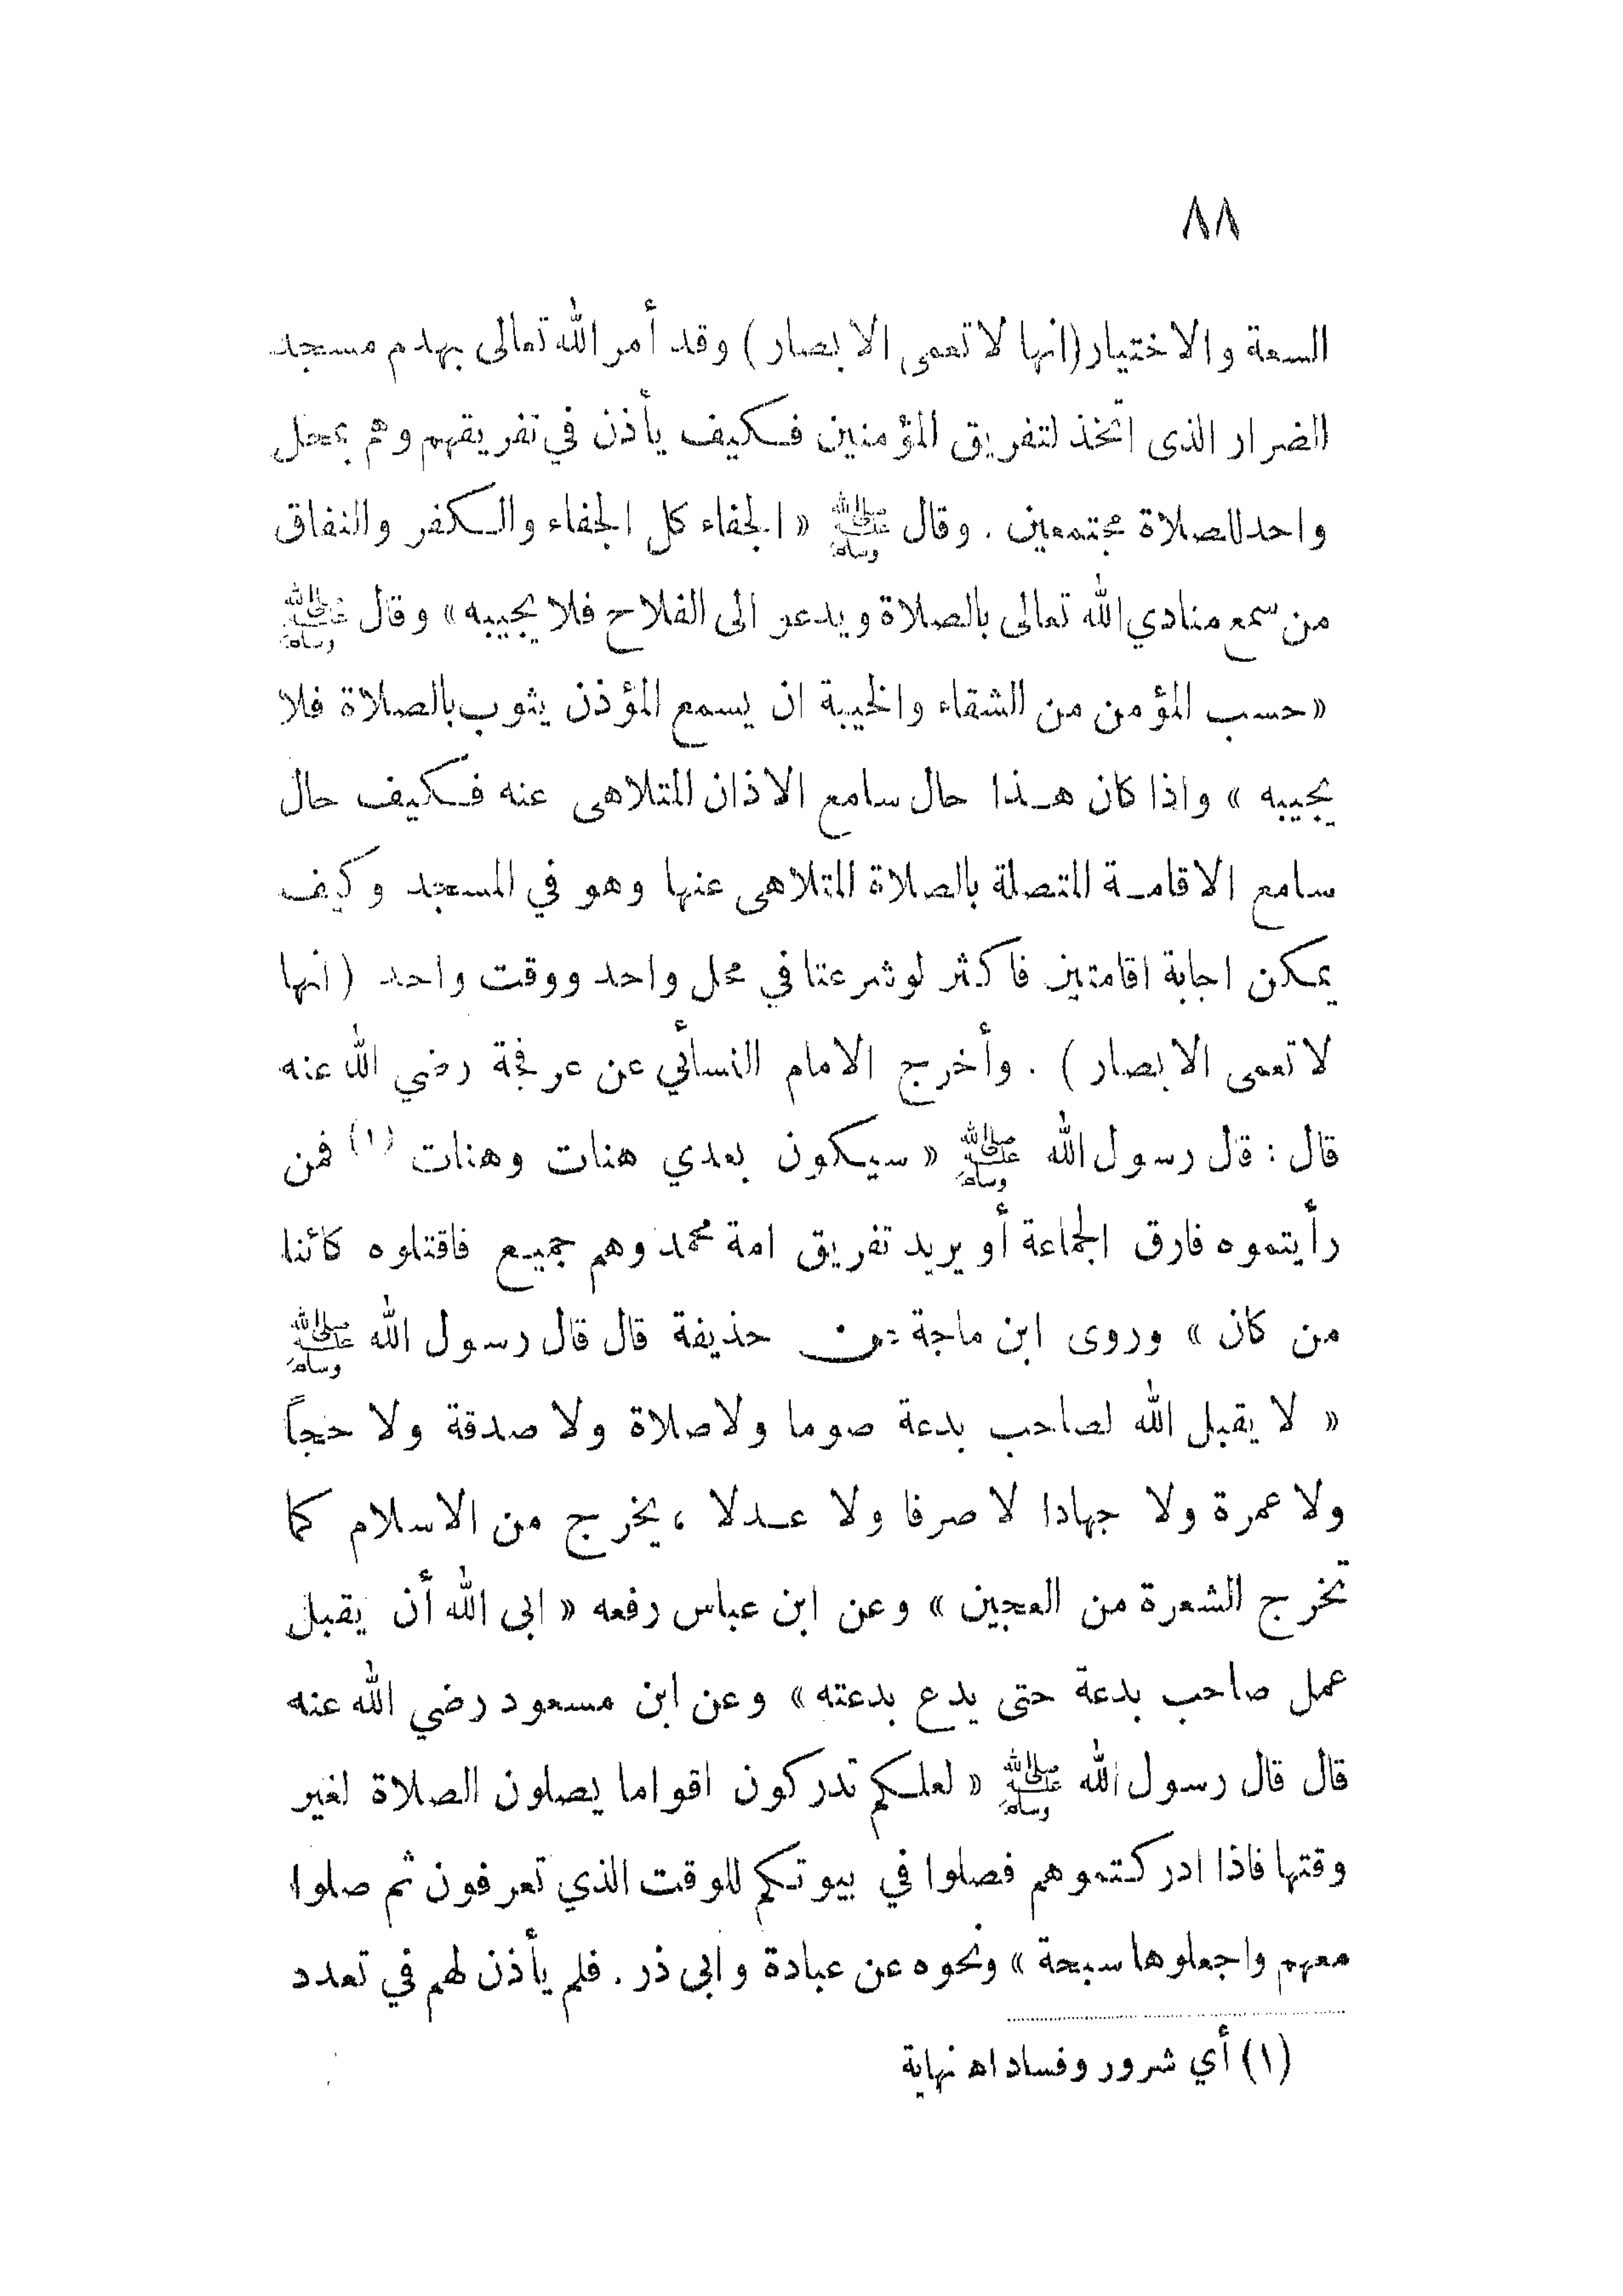 ٨٨
السعة والاختيار (انها لا تعمى الابصار) وقد أمر الله تعالى بهدم مسجد
الضرار الذى اتخذ لتفريق المؤمنين فكيف يأذن في تفريقهم وهم بمحل
واحد للصلاة مجتمعين . وقال ﷺ « الجفاء كل الجفاء والكفر والنفاق
من سمع منادي الله تعالى بالصلاة ويدعو الى الفلاح فلا يجيبه » وقال ﷺ
« حسب المؤمن من الشقاء والخيبة ان يسمع المؤذن يثوب بالصلاة فلا
يجيبه » واذا كان هذا حال سامع الاذان المتلاهى عنه فكيف حال
سامع الاقامة المتصلة بالصلاة المتلاهى عنها وهو في المسجد وكيف
يمكن اجابة اقامتين فاكثر لو شرعتا في محل واحد ووقت واحد (انها
لا تعمى الابصار) . وأخرج الامام النسأئي عن عرفجة رضي الله عنه
قال : قال رسول الله ﷺ « سيكون بعدي هنات وهنات (١) فمن
رأيتموه فارق الجماعة أو يريد تفريق امة محمد وهم جميع فاقتلوه كائنا
من كان » وروى ابن ماجة عن حذيفة قال قال رسول الله ﷺ
« لا يقبل الله لصاحب بدعة صوما ولا صلاة ولا صدقة ولا حجاً
ولا عمرة ولا جهادا لا صرفا ولا عدلا ، يخرج من الاسلام كما
تخرج الشعرة من العجين » وعن ابن عباس رفعه « ابى الله أن يقبل
عمل صاحب بدعة حتى يدع بدعته » وعن ابن مسعود رضي الله عنه
قال قال رسول الله ﷺ « لعلكم تدركون اقواما يصلون الصلاة لغير
وقتها فاذا ادركتموهم فصلوا في بيوتكم للوقت الذي تعرفون ثم صلوا
معهم واجعلوها سبحة » ونحوه عن عبادة وابى ذر . فلم يأذن لهم في تعدد
(١) أي شرور وفساد اه نهاية